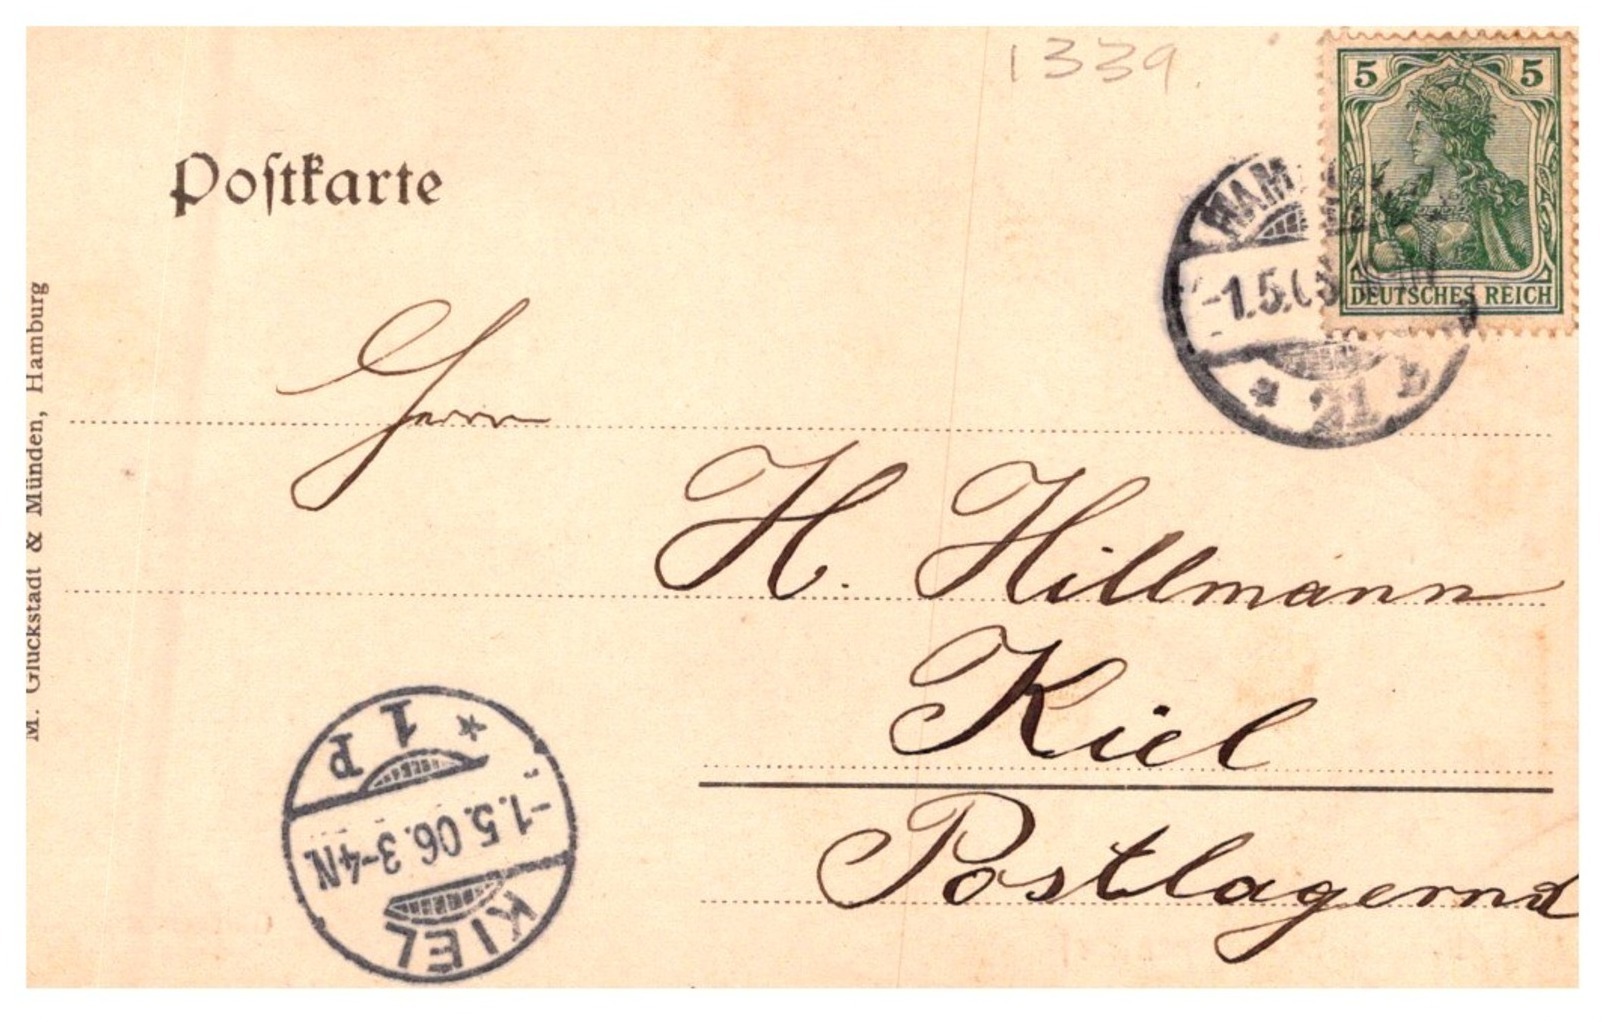 1339.
5 5
DEUTSCHES REICH
Postkarte
-1.5.06
* 21 b
Herrn
H. Hillmann
Kiel
Postlagernd
M. Glückstadt & Münden, Hamburg
KIEL
-1.5.06.3-4N.
* 1 P